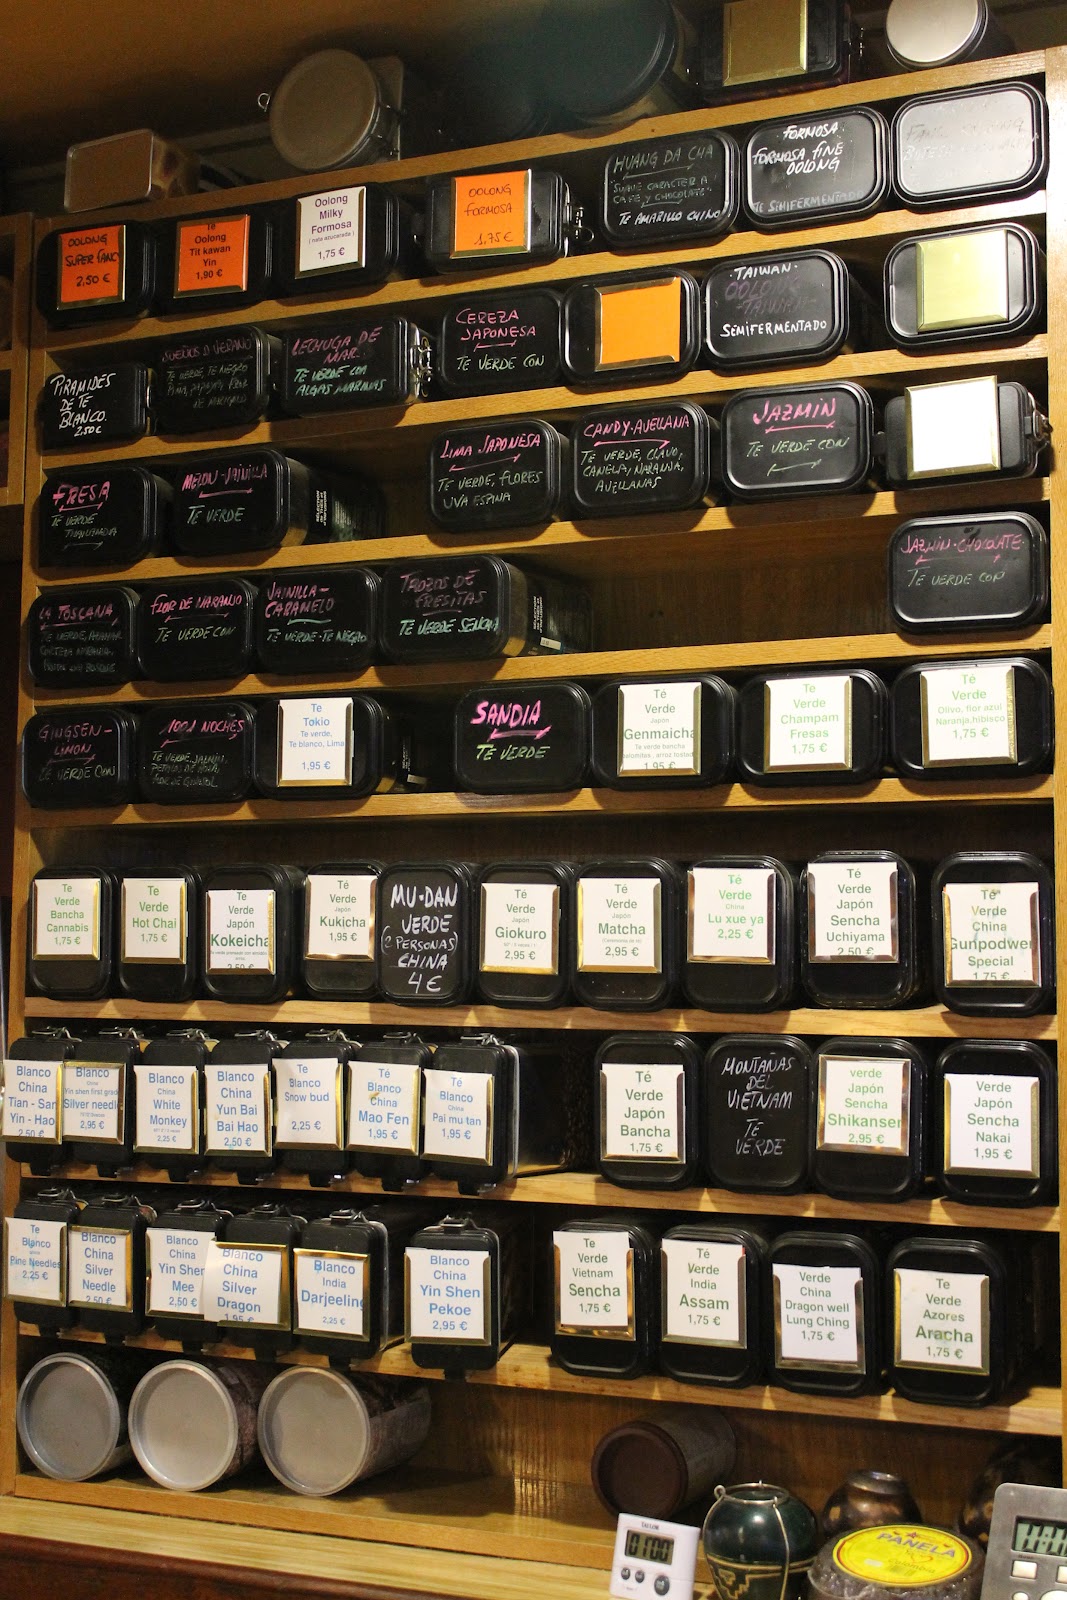 HUANG DA CHA
"SUAVE CARACTER A
CAFE Y CHOCOLATE"
TE AMARILLO CHINO
FORMOSA
FORMOSA FINE
OOLONG
TE SEMIFERMENTADO
OOLONG
SUPER FANCY
2,50 €
Te
Oolong
Tit kawan
Yin
1,90 €
Oolong
Milky
Formosa
( nata azucarada )
1,75 €
OOLONG
FORMOSA
1,75 €
PIRAMIDES
DE TE
BLANCO.
2,50 €
SUEÑOS D VERANO
TE VERDE, TE NEGRO
PIÑA, PAPAYA, FLOR
LECHUGA DE
MAR
TE VERDE CON
ALGAS MARINAS
CEREZA
JAPONESA
TE VERDE CON
TAIWAN
OOLONG
SEMIFERMENTADO
FRESA
TE VERDE
MELON-VAINILLA
TE VERDE
LIMA JAPONESA
TE VERDE, FLORES
UVA ESPINA
CANDY-AVELLANA
TE VERDE, CLAVO,
CANELA, NARANJA,
AVELLANAS
JAZMIN
TE VERDE CON
LA TOSCANA
TE VERDE, AZAHAR
FLOR DE NARANJO
TE VERDE CON
VAINILLA-
CARAMELO
TE VERDE-TE NEGRO
TROZOS DE
FRESITAS
TE VERDE SENCHA
JAZMIN-CHOCOLATE
TE VERDE CON
GINGSEN-
LIMON
TE VERDE CON
1001 NOCHES
TE VERDE, JAZMIN,
PETALOS DE ROSA,
FLOR DE GIRASOL
Te
Tokio
Te verde,
Te blanco, Lima
1,95 €
SANDIA
TE VERDE
Té
Verde
Japón
Genmaicha
Te verde bancha
palomitas , arroz tostado
1,95 €
Te
Verde
Champam
Fresas
1,75 €
Té
Verde
Olivo, flor azul
Naranja,hibisco
1,75 €
Te
Verde
Bancha
Cannabis
1,75 €
Te
Verde
Hot Chai
1,75 €
Te
Verde
Japón
Kokeicha
2,50 €
Té
Verde
Japón
Kukicha
1,95 €
MU-DAN
VERDE
(2 PERSONAS)
CHINA
4 €
Té
Verde
Japón
Giokuro
2,95 €
Té
Verde
Japón
Matcha
2,95 €
Té
Verde
China
Lu xue ya
2,25 €
Té
Verde
Japón
Sencha
Uchiyama
2,50 €
Te
Verde
China
Gunpodwer
Special
1,75 €
Blanco
China
Tian - San
Yin - Hao
2,50 €
Blanco
China
Yin shen first grade
Silver needle
2,95 €
Blanco
China
White
Monkey
2,25 €
Blanco
China
Yun Bai
Bai Hao
2,50 €
Te
Blanco
Snow bud
2,25 €
Té
Blanco
China
Mao Fen
1,95 €
Te
Blanco
China
Pai mu tan
1,95 €
Té
Verde
Japón
Bancha
1,75 €
MONTAÑAS
DEL
VIETNAM
TE
VERDE
verde
Japón
Sencha
Shikansen
2,95 €
Verde
Japón
Sencha
Nakai
1,95 €
Te
Blanco
Pine Needles
2,25 €
Blanco
China
Silver
Needle
2,50 €
Blanco
China
Yin Shen
Mee
2,50 €
Blanco
China
Silver
Dragon
1,95 €
Blanco
India
Darjeeling
2,25 €
Blanco
China
Yin Shen
Pekoe
2,95 €
Te
Verde
Vietnam
Sencha
1,75 €
Té
Verde
India
Assam
1,75 €
Verde
China
Dragon well
Lung Ching
1,75 €
Te
Verde
Azores
Aracha
1,75 €
TAYLOR
0100
PANELA